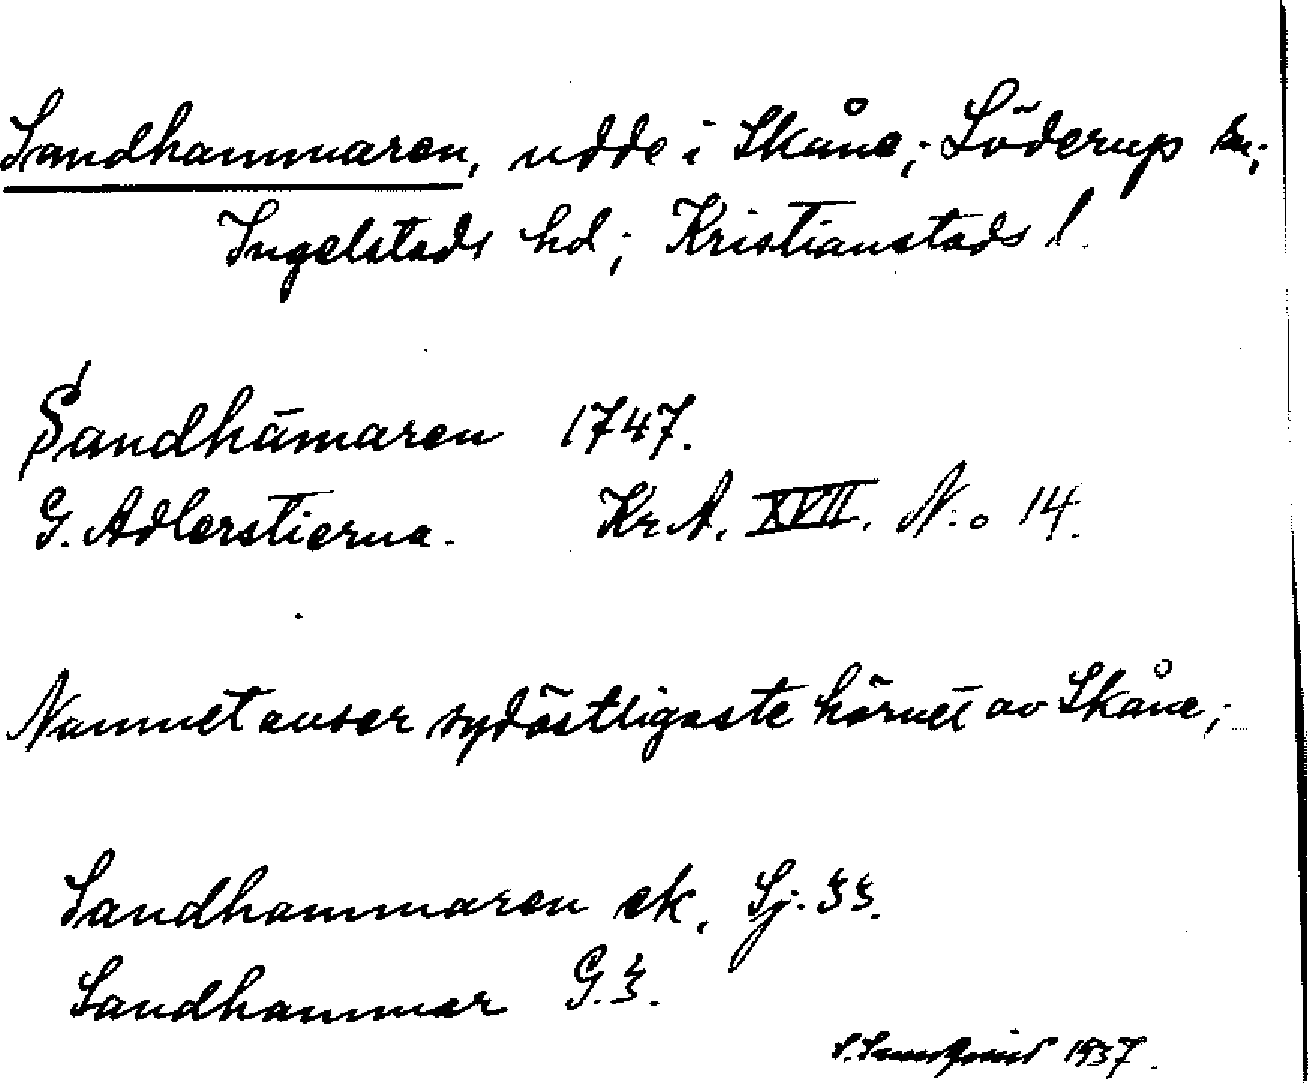 Sandhammaren, udde i Skåne; Löderup sn;
Ingelstads hd; Kristianstads l.
Sandhām̄aren 1747.
G. Adlerstierna. Kr.A. XVII. N.o 14.
Namnet avser sydöstligaste hörnet av Skåne;
Sandhammaren ek. Sj. 33.
Sandhammar G. 3.
1937.